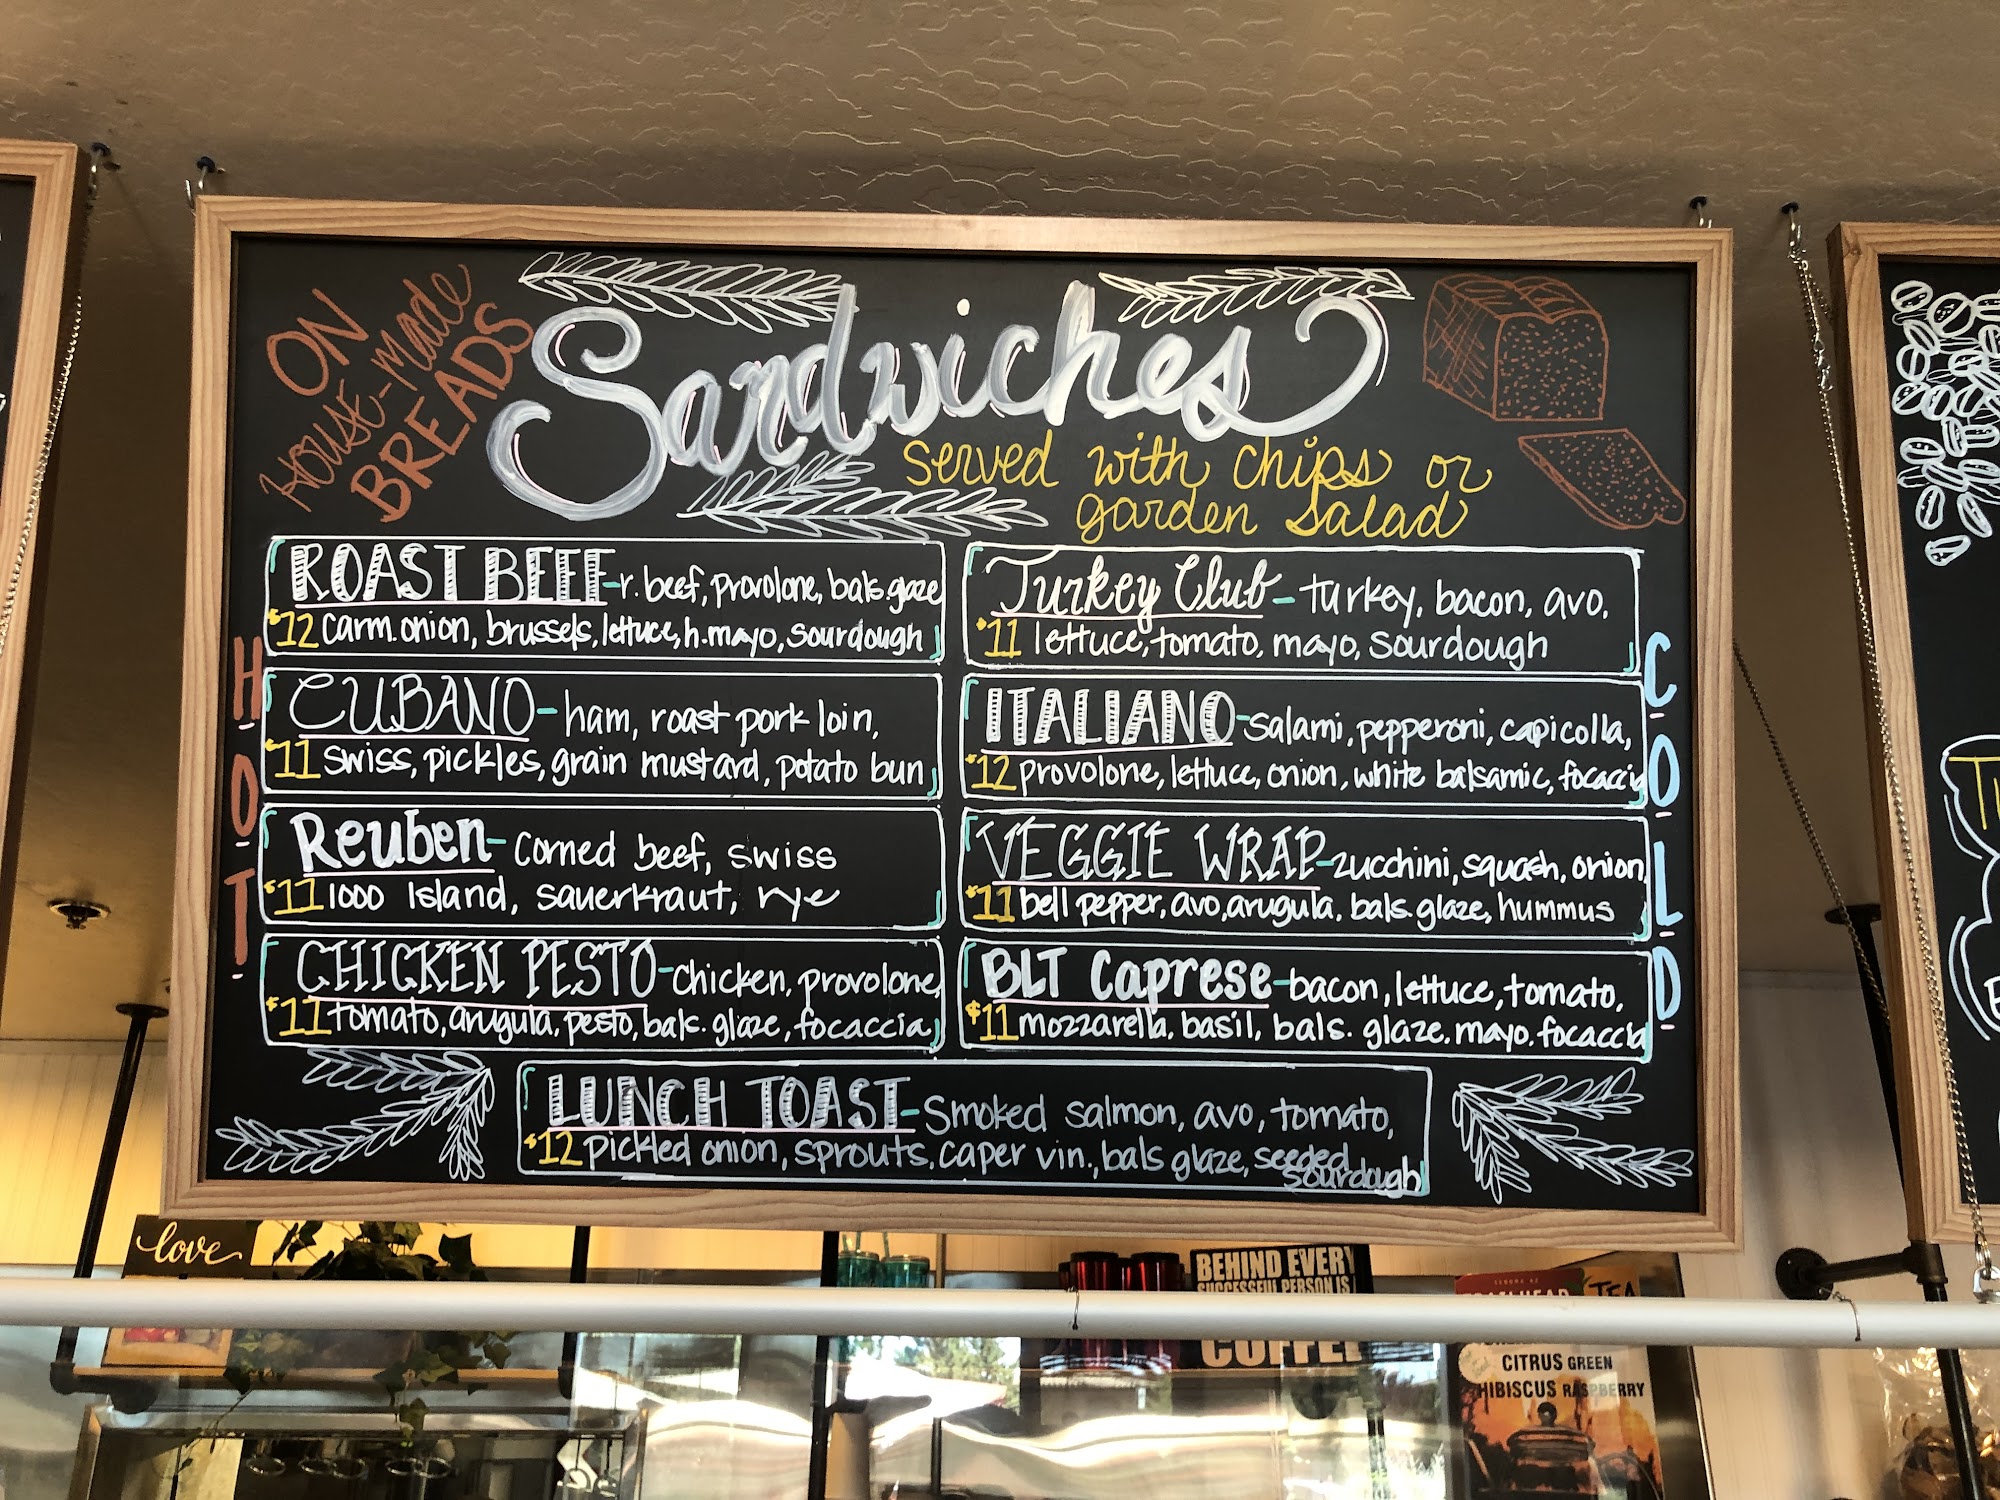 ON
HOUSE-Made
BREADS
Sandwiches
served with chips or
garden salad
HOT
ROAST BEEF - r. beef, provolone, bals. glaze
$12 carm. onion, brussels, lettuce, h. mayo, sourdough
CUBANO - ham, roast pork loin,
$11 swiss, pickles, grain mustard, potato bun
Reuben - corned beef, swiss
$11 1000 island, sauerkraut, rye
CHICKEN PESTO - chicken, provolone,
$11 tomato, arugula, pesto, bals. glaze, focaccia
COLD
Turkey Club - turkey, bacon, avo,
$11 lettuce, tomato, mayo, sourdough
ITALIANO - salami, pepperoni, capicolla,
$12 provolone, lettuce, onion, white balsamic, focaccia
VEGGIE WRAP - zucchini, squash, onion,
$11 bell pepper, avo, arugula, bals. glaze, hummus
BLT Caprese - bacon, lettuce, tomato,
$11 mozzarella, basil, bals. glaze, mayo, focaccia
LUNCH TOAST - Smoked salmon, avo, tomato,
$12 pickled onion, sprouts, caper vin., bals glaze, seeded
sourdough
love
BEHIND EVERY
SUCCESSFUL PERSON IS
COFFEE
TEA
CITRUS GREEN
HIBISCUS RASPBERRY